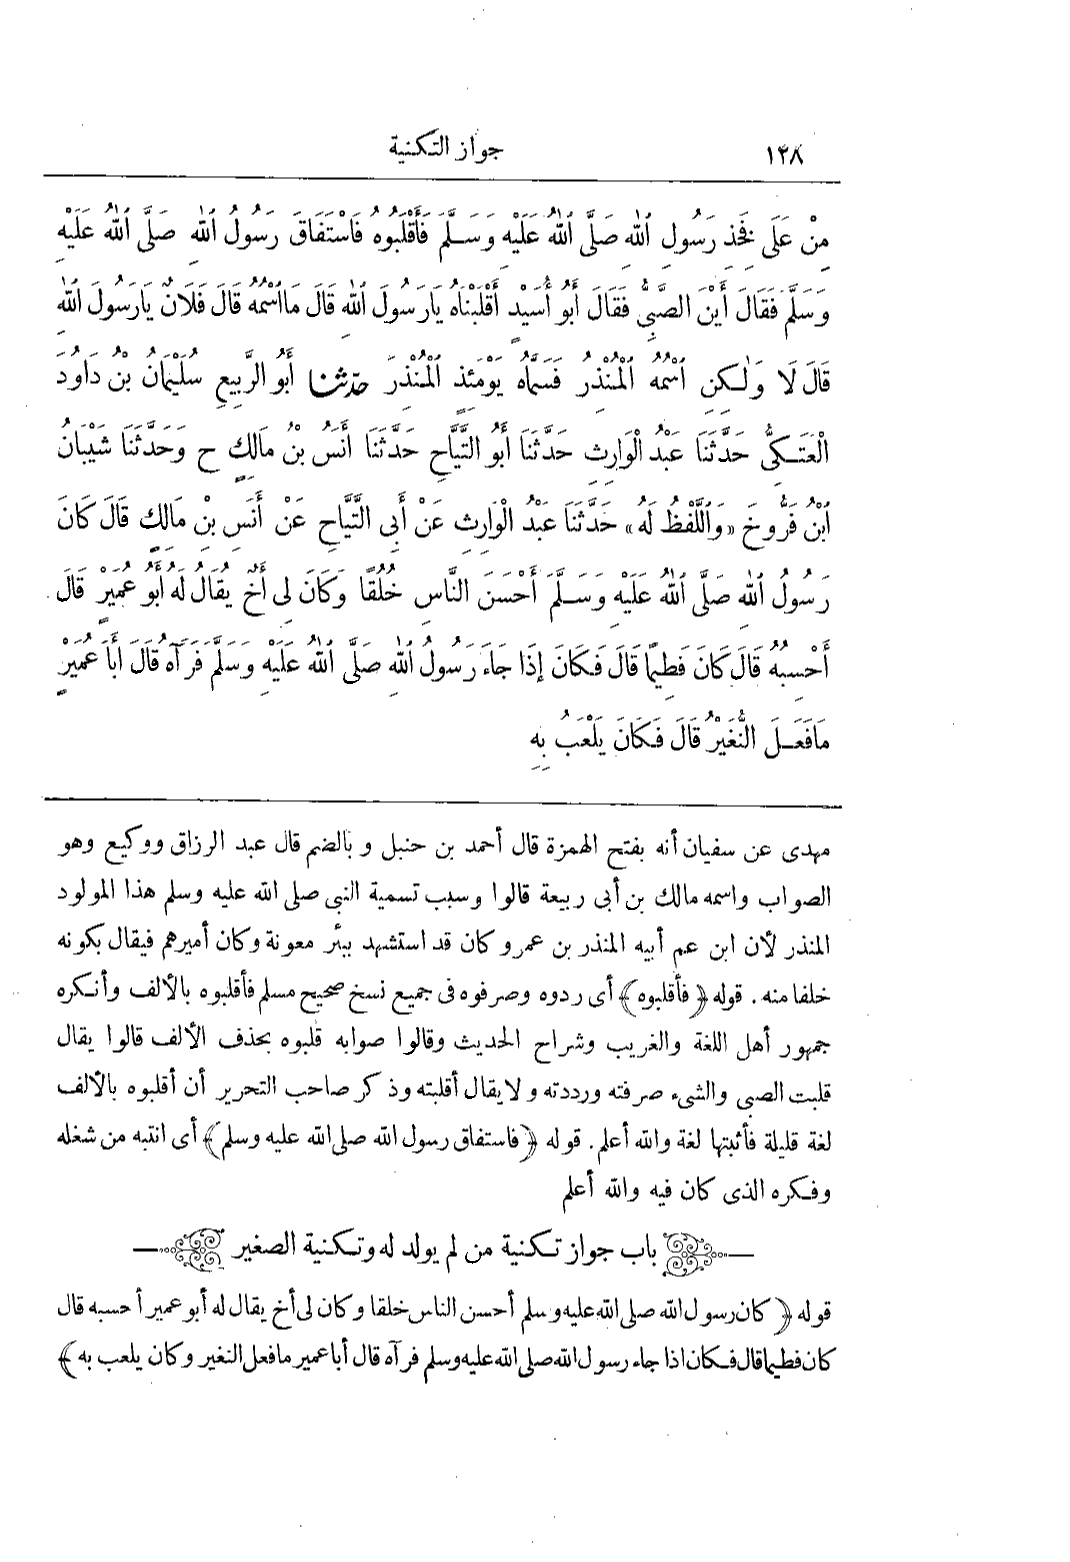 ١٢٨ جواز التكنية
مِنْ عَلَى فَخِذِ رَسُولِ ٱللهِ صَلَّى ٱللهُ عَلَيْهِ وَسَلَّمَ فَأَقْلَبُوهُ فَاسْتَفَاقَ رَسُولُ ٱللهِ صَلَّى ٱللهُ عَلَيْهِ
وَسَلَّمَ فَقَالَ أَيْنَ الصَّبِىُّ فَقَالَ أَبُو أُسَيْدٍ أَقْلَبْنَاهُ يَارَسُولَ ٱللهِ قَالَ مَا ٱسْمُهُ قَالَ فُلَانٌ يَارَسُولَ ٱللهِ
قَالَ لَا وَلٰكِنِ ٱسْمُهُ ٱلْمُنْذِرُ فَسَمَّاهُ يَوْمَئِذٍ ٱلْمُنْذِرَ حدّثنا أَبُو الرَّبِيعِ سُلَيْمَانُ بْنُ دَاوُدَ
الْعَتَكِىُّ حَدَّثَنَا عَبْدُ الْوَارِثِ حَدَّثَنَا أَبُو التَّيَّاحِ حَدَّثَنَا أَنَسُ بْنُ مَالِكٍ ح وَحَدَّثَنَا شَيْبَانُ
ٱبْنُ فَرُّوخَ «وَاللَّفْظُ لَهُ» حَدَّثَنَا عَبْدُ الْوَارِثِ عَنْ أَبِى التَّيَّاحِ عَنْ أَنَسِ بْنِ مَالِكٍ قَالَ كَانَ
رَسُولُ ٱللهِ صَلَّى ٱللهُ عَلَيْهِ وَسَلَّمَ أَحْسَنَ النَّاسِ خُلُقًا وَكَانَ لِى أَخٌ يُقَالُ لَهُ أَبُو عُمَيْرٍ قَالَ
أَحْسِبُهُ قَالَ كَانَ فَطِيمًا قَالَ فَكَانَ إِذَا جَاءَ رَسُولُ ٱللهِ صَلَّى ٱللهُ عَلَيْهِ وَسَلَّمَ فَرَآهُ قَالَ أَبَا عُمَيْرٍ
مَافَعَلَ النُّغَيْرُ قَالَ فَكَانَ يَلْعَبُ بِهِ
مهدى عن سفيان أنه بفتح الهمزة قال أحمد بن حنبل وبالضم قال عبد الرزاق ووكيع وهو
الصواب واسمه مالك بن أبى ربيعة قالوا وسبب تسمية النبى صلى الله عليه وسلم هذا المولود
المنذر لأن ابن عم أبيه المنذر بن عمرو كان قد استشهد ببئر معونة وكان أميرهم فيقال بكونه
خلفا منه. قوله ﴿فأقلبوه﴾ أى ردوه وصرفوه فى جميع نسخ صحيح مسلم فأقلبوه بالألف وأنكره
جمهور أهل اللغة والغريب وشراح الحديث وقالوا صوابه قلبوه بحذف الألف قالوا يقال
قلبت الصبى والشىء صرفته ورددته ولا يقال أقلبته وذكر صاحب التحرير أن أقلبوه بالألف
لغة قليلة فأثبتها لغة والله أعلم. قوله ﴿فاستفاق رسول الله صلى الله عليه وسلم﴾ أى انتبه من شغله
وفكره الذى كان فيه والله أعلم
باب جواز تكنية من لم يولد له وتكنية الصغير
قوله ﴿كان رسول الله صلى الله عليه وسلم أحسن الناس خلقا وكان لى أخ يقال له أبو عمير أحسبه قال
كان فطيما قال فكان اذا جاء رسول الله صلى الله عليه وسلم فرآه قال أبا عمير ما فعل النغير وكان يلعب به﴾